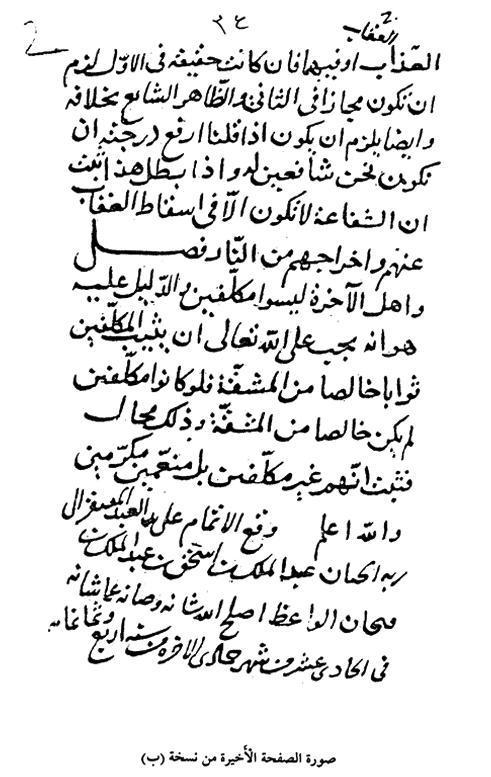 ٣٤
العقاب
العذاب او فيهما فان كانت حقيقة فى الاول لزم
ان تكون مجازا فى الثانى والظاهر الشايع بخلافه
وايضا يلزم ان يكون اذا قلنا ارفع درجته ان
نكون نحن شافعين له واذا بطل هذا ثبت
ان الشفاعة لا تكون الا فى اسقاط العقاب
عنهم واخراجهم من النار فصل
واهل الآخرة ليسوا مكلّفين والدّليل عليه
هو انه يجب على الله تعالى ان يثيب المكلّفين
ثوابا خالصا من المشقّة فلو كانوا مكلّفين
لم يكن خالصا من المشقّة وذلك محال
فثبت انّهم غير مكلّفين بل منعّمين مكرّمين
والله اعلم وقع الاتمام على يد العبد المفتقر الى
ربه الحنان عبد الملك بن اسحق بن عبد الملك بن
فتحان الواعظ اصلح الله شانه وصانه عما شانه
فى الحادى عشر من شهر جمادى الاخرة من سنه اربع
وثمانمائه
صورة الصفحة الأخيرة من نسخة (ب)